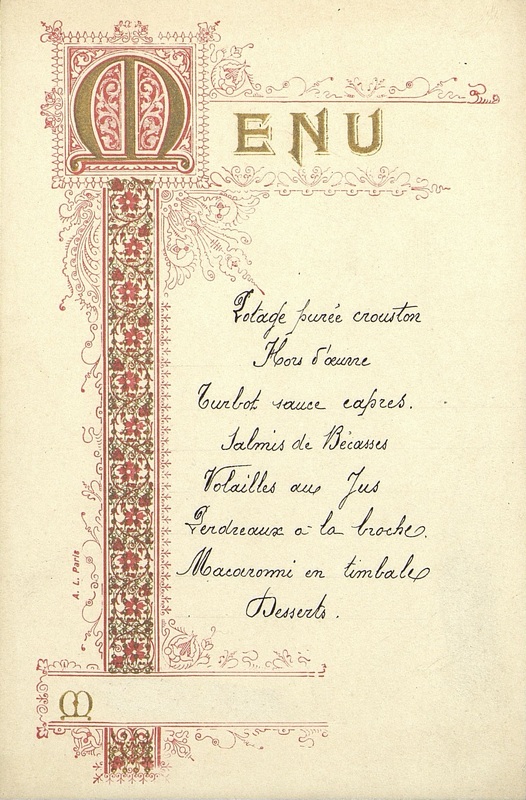 MENU
Potage purée crouston
Hors d'œuvre
Turbot sauce capres.
Salmis de Bécasses
Volailles aux Jus
Perdreaux a la broche.
Macaronni en timbale
Desserts.
A. L. Paris
M